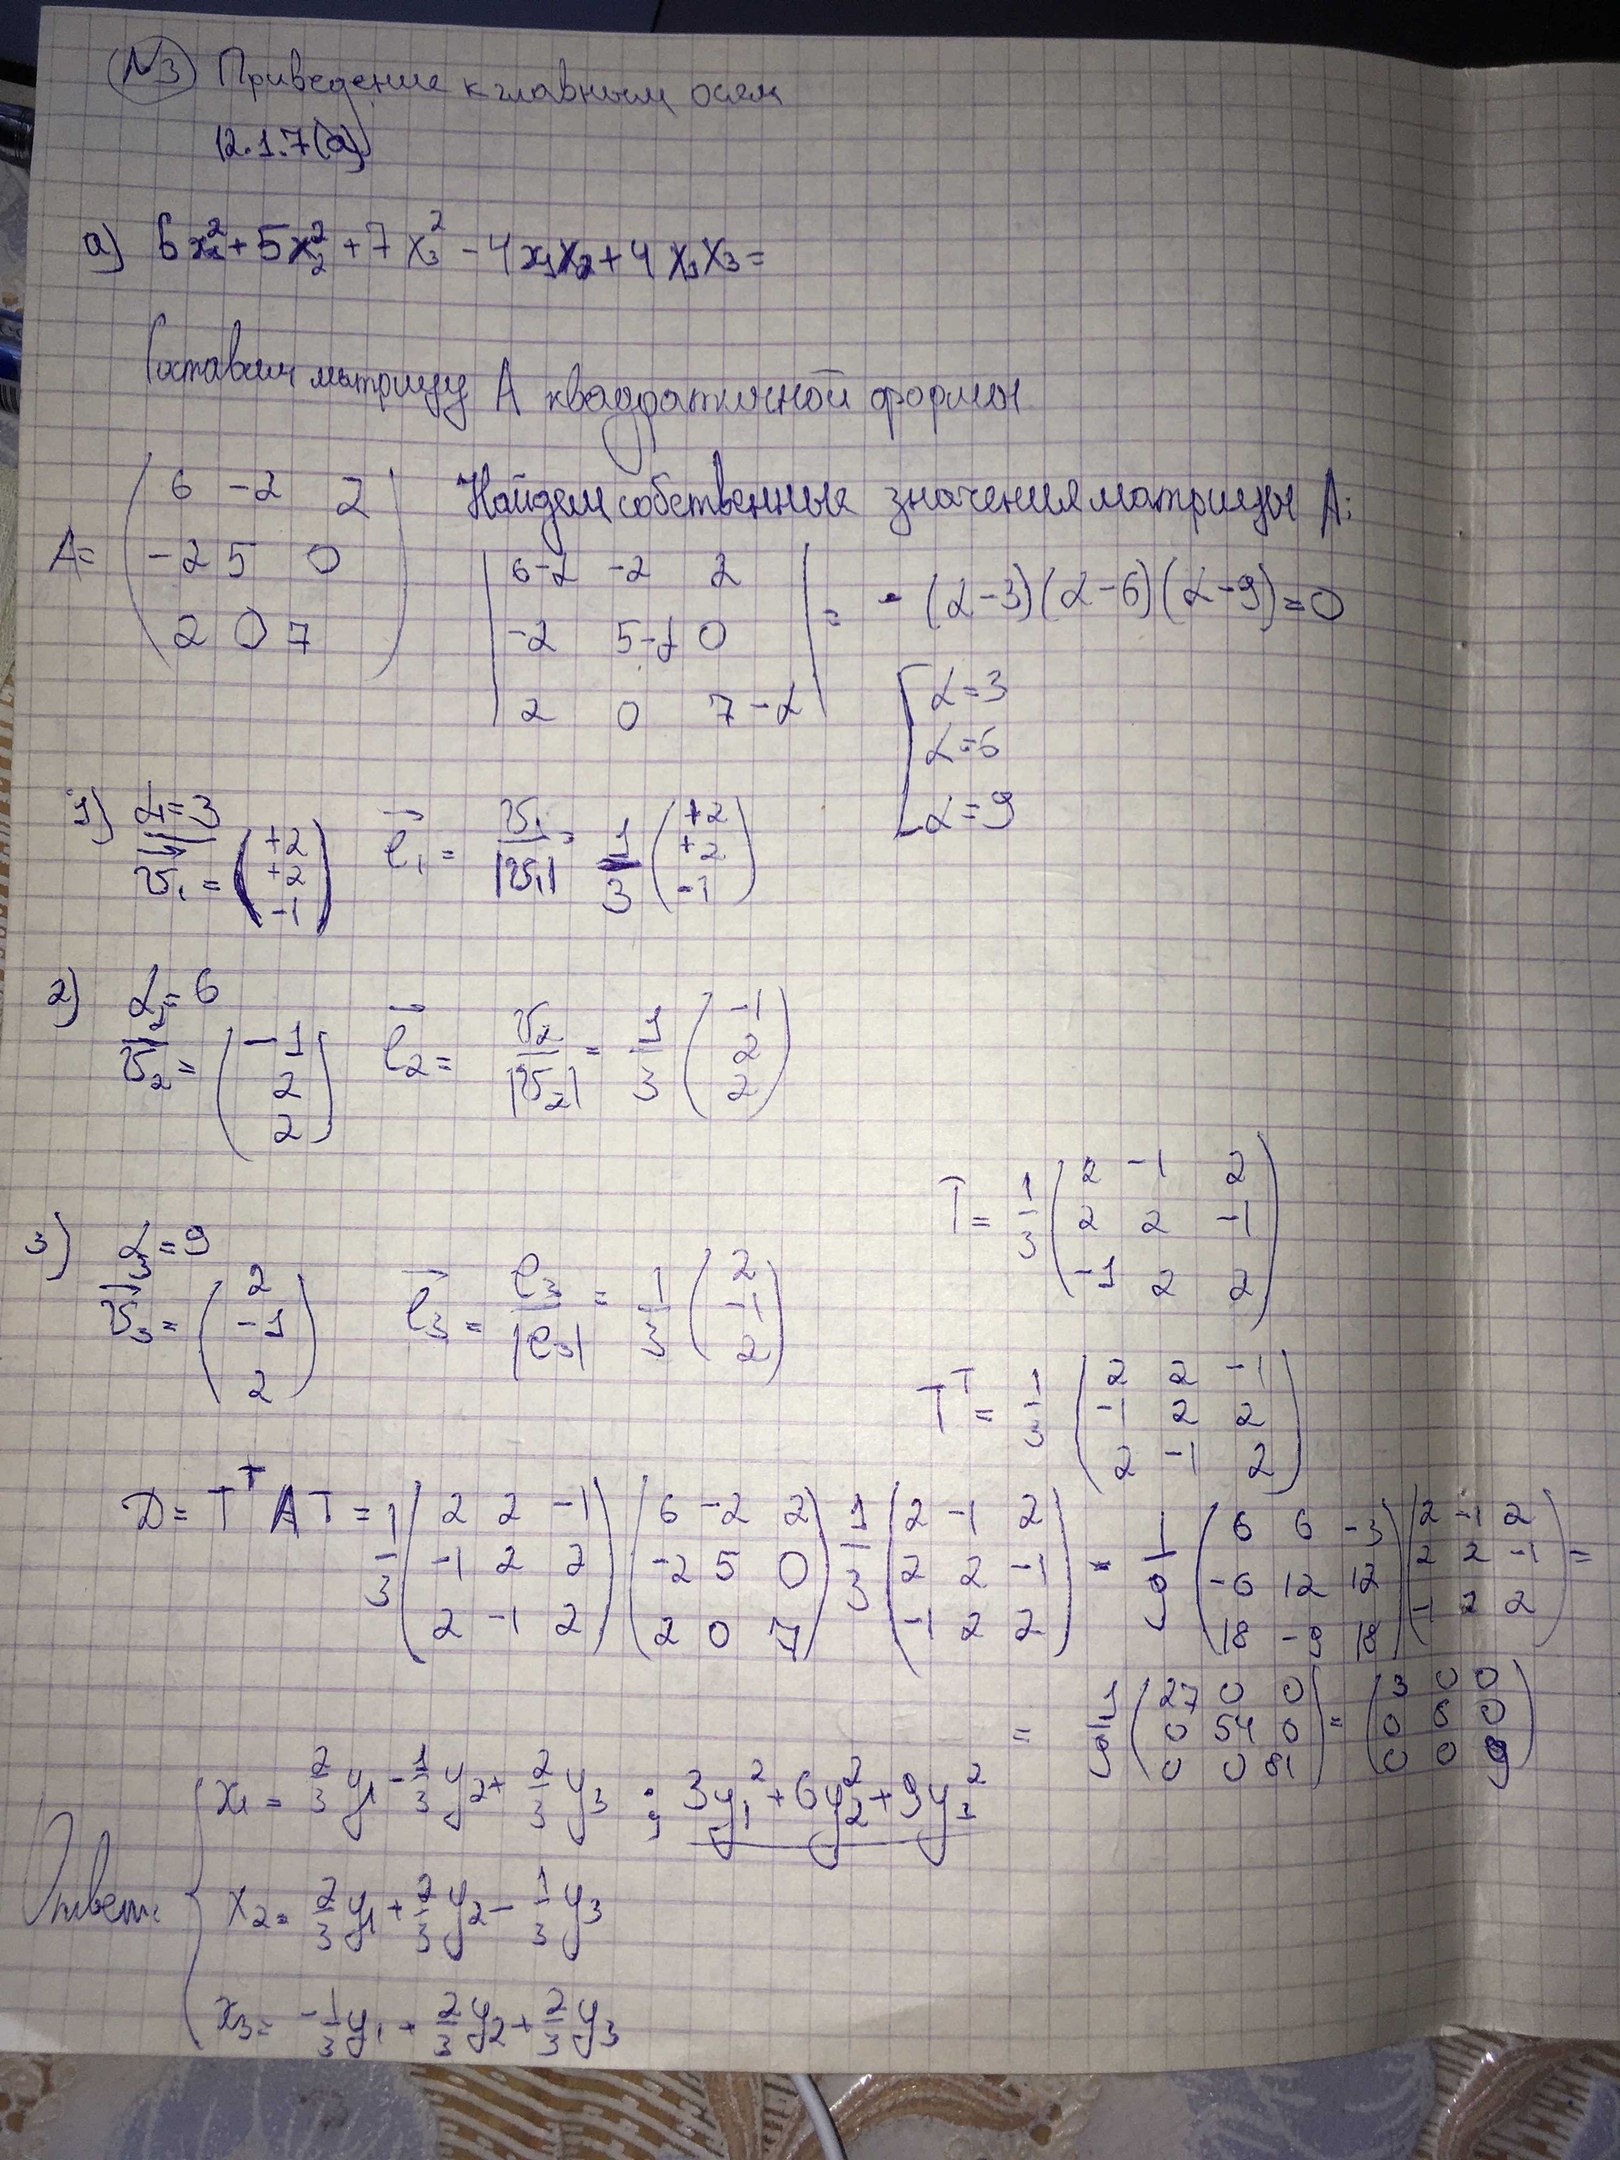 №3 Приведение к главным осям
12.1.7(а)
а) 6x₁² + 5x₂² + 7x₃² - 4x₁x₂ + 4x₁x₃ =
Составим матрицу А квадратичной формы
A = ( 6 -2 2 ; -2 5 0 ; 2 0 7 )
Найдем собственные значения матрицы А:
| 6-λ -2 2 ; -2 5-λ 0 ; 2 0 7-λ | = -(λ-3)(λ-6)(λ-9)=0
[ λ=3 ; λ=6 ; λ=9
1) λ₁=3
v₁ = ( +2 ; +2 ; -1 ) e₁ = v₁/|v₁| = 1/3 ( +2 ; +2 ; -1 )
2) λ₂=6
v₂ = ( -1 ; 2 ; 2 ) e₂ = v₂/|v₂| = 1/3 ( -1 ; 2 ; 2 )
3) λ₃=9
v₃ = ( 2 ; -1 ; 2 ) e₃ = e₃/|e₃| = 1/3 ( 2 ; -1 ; 2 )
T = 1/3 ( 2 -1 2 ; 2 2 -1 ; -1 2 2 )
Tᵀ = 1/3 ( 2 2 -1 ; -1 2 2 ; 2 -1 2 )
D = Tᵀ A T = 1/3 ( 2 2 -1 ; -1 2 2 ; 2 -1 2 ) ( 6 -2 2 ; -2 5 0 ; 2 0 7 ) 1/3 ( 2 -1 2 ; 2 2 -1 ; -1 2 2 ) = 1/9 ( 6 6 -3 ; -6 12 12 ; 18 -9 18 ) ( 2 -1 2 ; 2 2 -1 ; -1 2 2 ) =
= 1/9 ( 27 0 0 ; 0 54 0 ; 0 0 81 ) = ( 3 0 0 ; 0 6 0 ; 0 0 9 )
Ответ: { x₁ = 2/3 y₁ - 1/3 y₂ + 2/3 y₃ ; 3y₁² + 6y₂² + 9y₃²
x₂ = 2/3 y₁ + 2/3 y₂ - 1/3 y₃
x₃ = -1/3 y₁ + 2/3 y₂ + 2/3 y₃